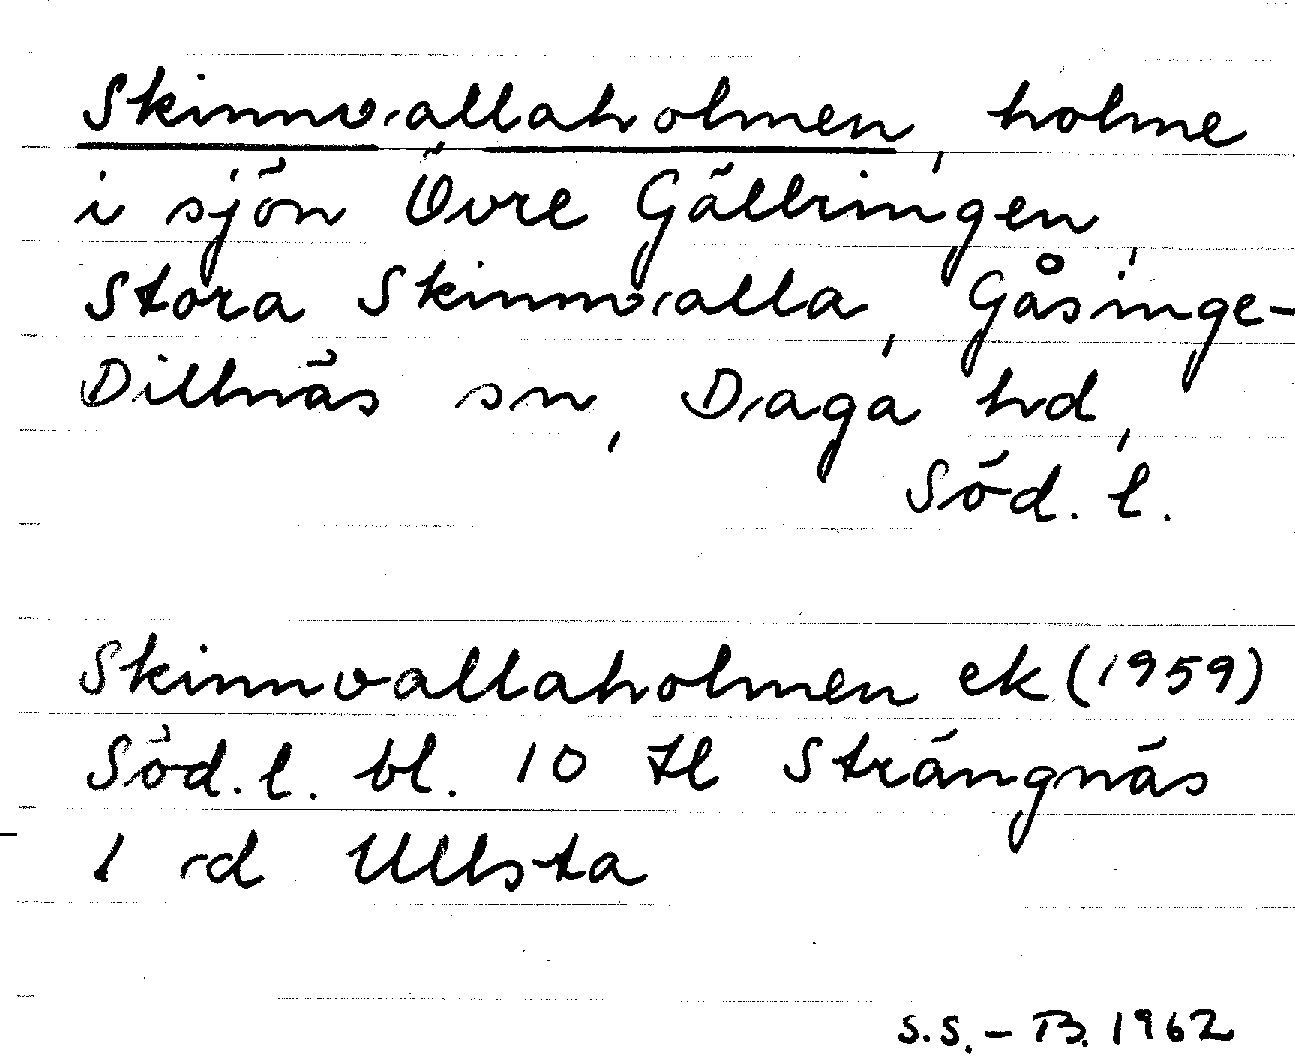 Skinnvallaholmen, holme
i sjön Övre Gällringen,
Stora Skinnvalla, Gåsinge-
Dillnäs sn, Daga hd,
Söd. l.
Skinnvallaholmen ek (1959)
Söd. l. bl. 10 tl Strängnäs
1 rd Ullsta
S.S. - B. 1962